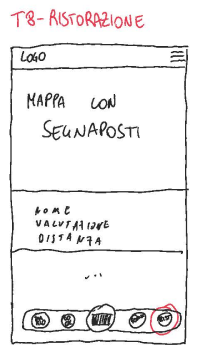 T8-RISTORAZIONE
LOGO
MAPPA CON
SEGNAPOSTI
NOME
VALUTAZIONE
DISTANZA
...